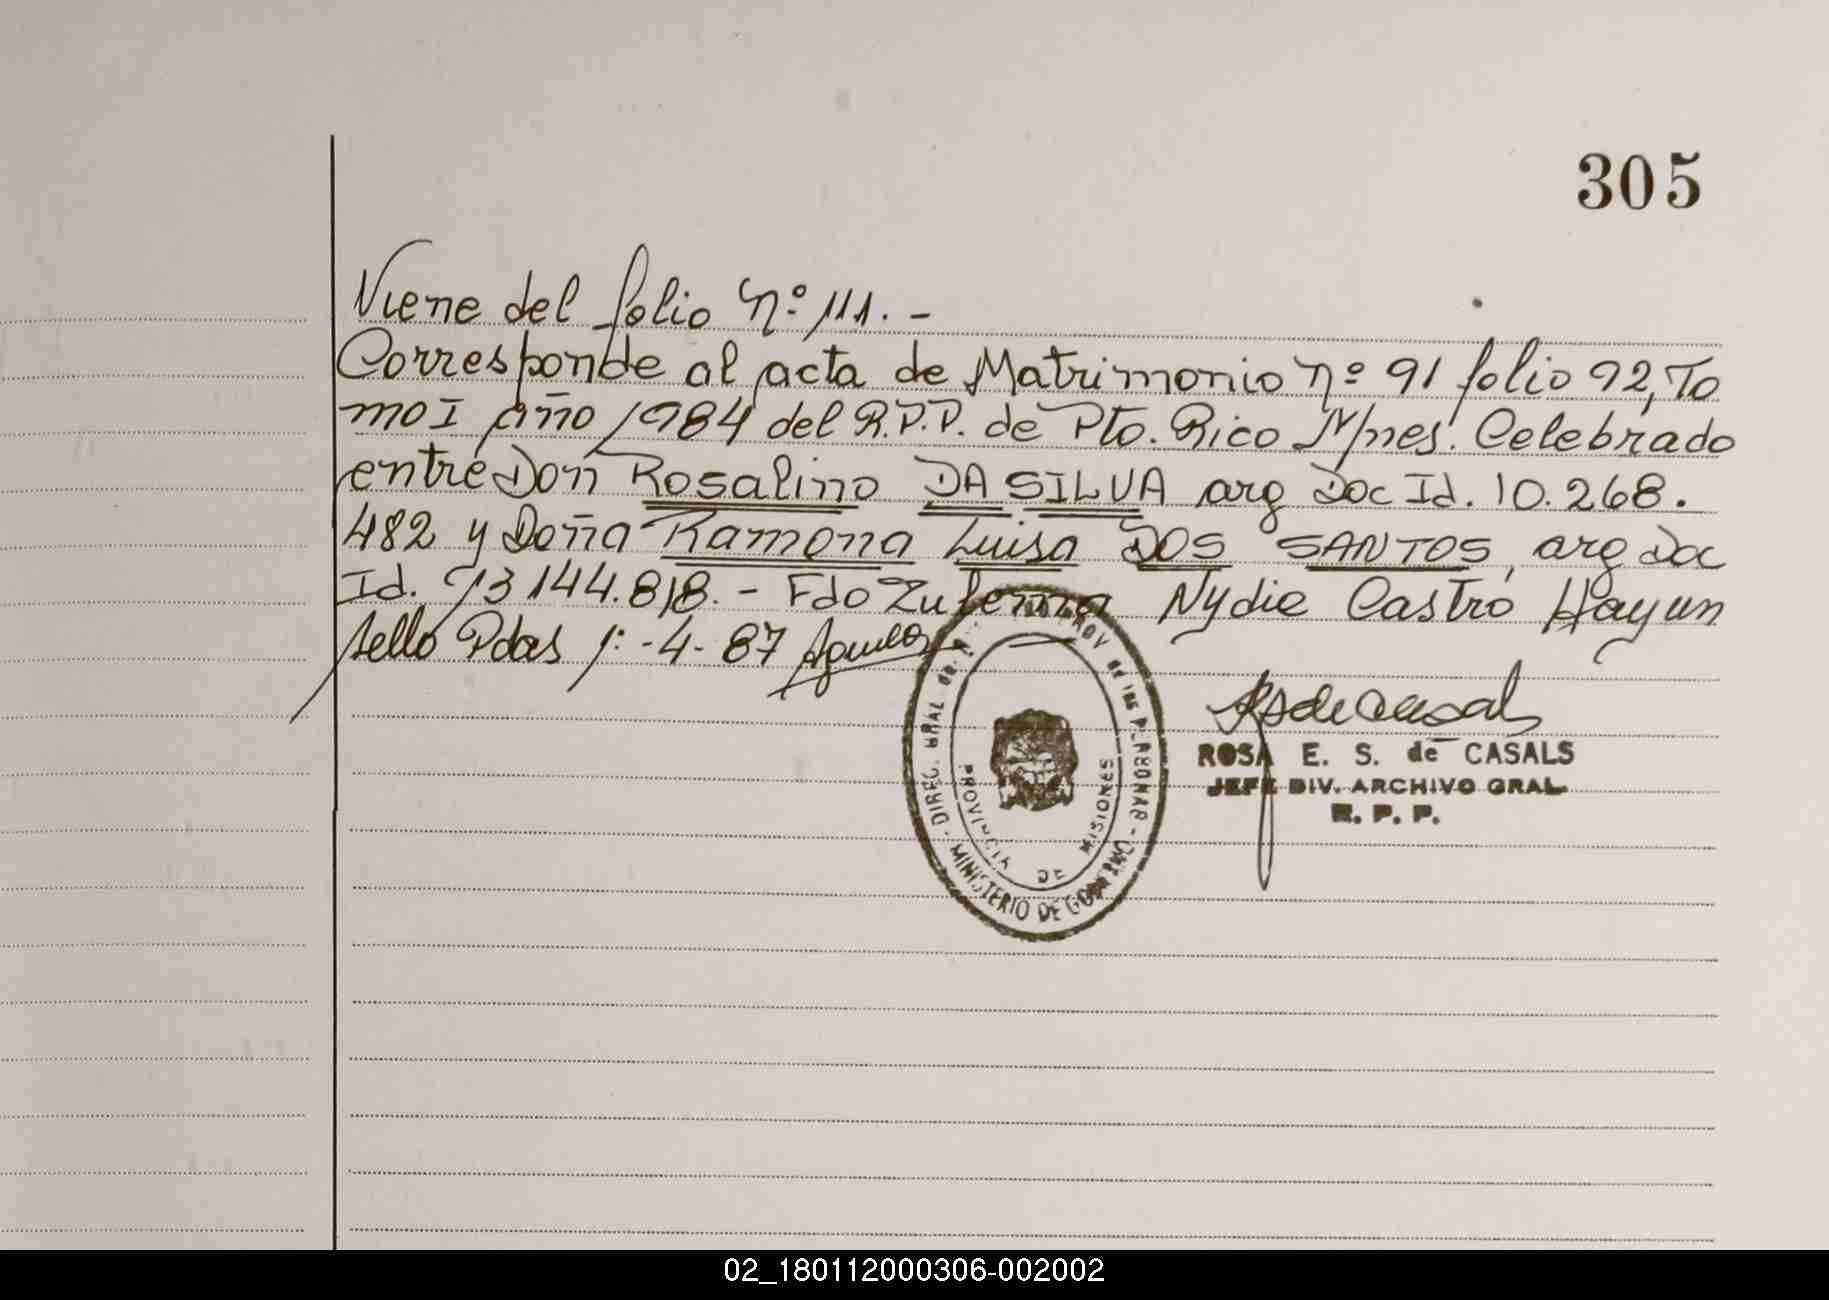 305
Viene del folio nº 111.-
Corresponde al acta de Matrimonio nº 91 folio 92, To
mo I año 1984 del R.P.P. de Pto. Rico Mnes. Celebrado
entre Don Rosalino DA SILVA arg Doc Id. 10.268.
482 y Doña Ramona Luisa DOS SANTOS, arg Doc
Id. 93 144.818.- Fdo Zulema Nydie Castro Hayun
sello Pdas 1:-4-87
DIREC. GRAL de PROV de las PERSONAS - MINISTERIO DE GOBIERNO
PROVINCIA DE MISIONES
ROSA E. S. de CASALS
JEFE DIV. ARCHIVO GRAL
R. P. P.
02_180112000306-002002